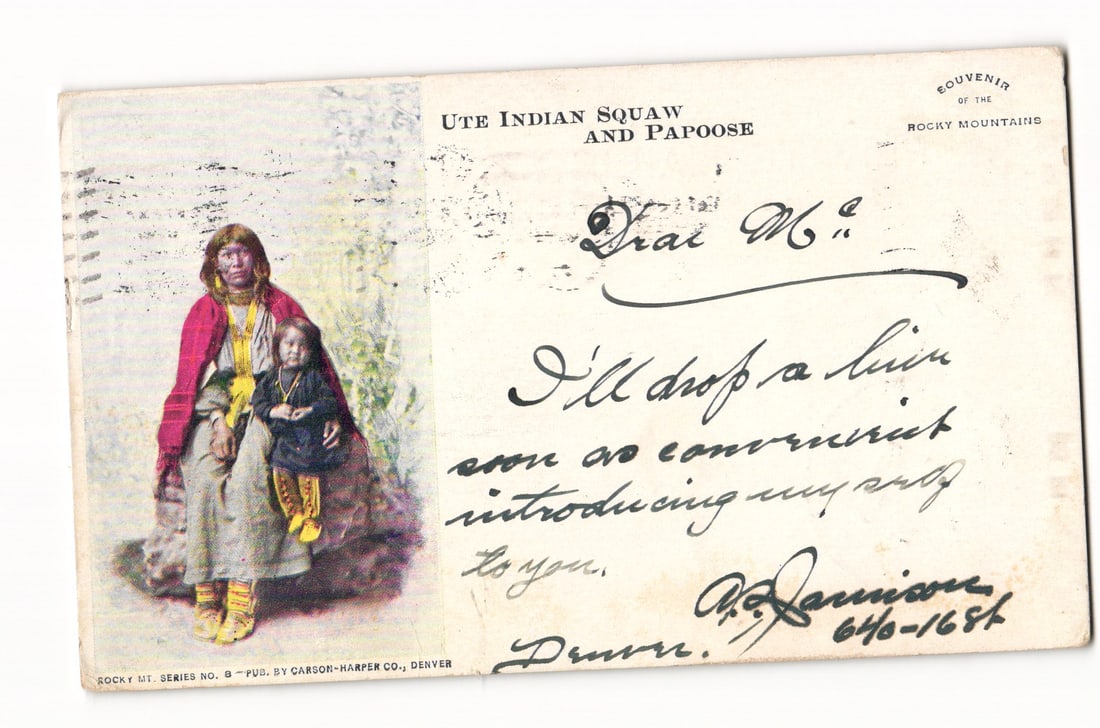 UTE INDIAN SQUAW
AND PAPOOSE
SOUVENIR
OF THE
ROCKY MOUNTAINS
Dear
I'll drop a line
soon as convenient
introducing myself
to you.
Jamison
640-16 St
Denver.
ROCKY MT. SERIES NO. 8 - PUB. BY CARSON-HARPER CO., DENVER